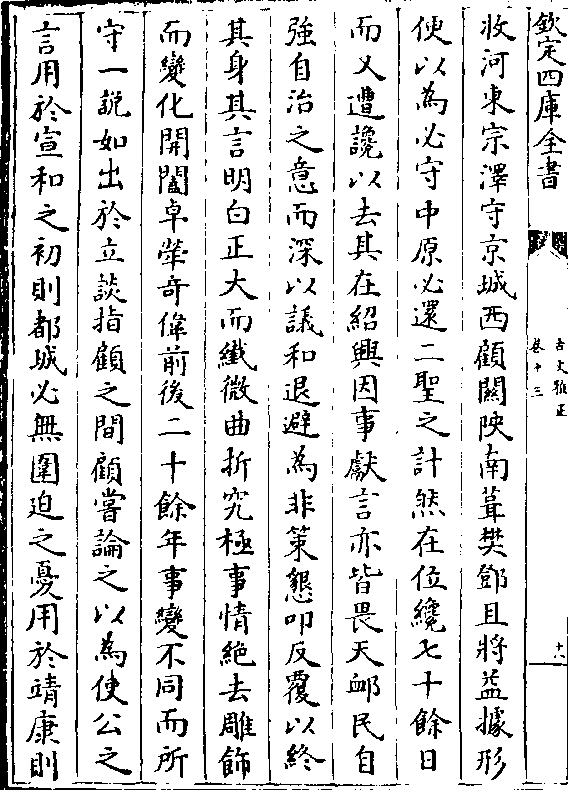 欽定四庫全書
古文雅正
卷十三
十八
收河東宗澤守京城西顧關陜南葺樊鄧且將益據形
使以為必守中原必還二聖之計然在位纔七十餘日
而又遭讒以去其在紹興因事獻言亦皆畏天卹民自
強自治之意而深以議和退避為非策懇叩反覆以終
其身其言明白正大而纖微曲折究極事情絶去雕飾
而變化開闔卓犖奇偉前後二十餘年事變不同而所
守一説如出於立談指顧之間顧嘗論之以為使公之
言用於宣和之初則都城必無圍迫之憂用於靖康則